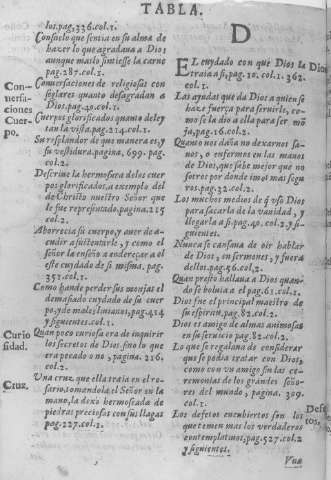 TABLA.
los.pag.336.col.1.
Consuelo que sentia en su alma de
hazer lo que agradaua a Dios
aunque mas lo sintiesse la carne
pag.287.col.1.
Conuersaciones de religiosas con
seglares quanto desagradan a
Dios.pag.40.col.1.
Cuerpos glorificados quanto deley
tan la vista.pag.214.col.1.
Su resplandor de que manera es, y
su vestidura.pagina, 699. pag.
col.2.
Descriue la hermosura delos cuer
pos glorificados, a exemplo del
de Christo nuestro Señor que
le fue representado.pagina,215
col.2.
Aborrecia su cuerpo, y auer de a-
cudir a sustentarle, y como el
señor la enseño a endereçar a el
este cuydado de si misma. pag.
357.col.1.
Como hande perder sus monjas el
demasiado cuydado de su cuer
po,y de males liuianos,pag,414
y siguientes.col.1.
Quan poco curiosa era de inquirir
los secretos de Dios. sino lo que
era pecado o no, pagina, 216.
col.2.
Vna cruz, que ella traia en el ro-
sario,tomandola el Señor en la
mano, la dexò hermoseada de
piedras preciosas con sus llagas
pag.227.col.1.
Conuersa-
ciones
Cuer-
po.
Curio
sidad.
Cruz.
D
EL cuydado con que Dios la
traia a si,pag.10. col.1. 362.
col.1.
Las ayudas que da Dios a quien se
haze fuerça para seruirle, co-
mo se la dio a ella para ser mō
ja,pag.16.col.2.
Quanto nos daña no dexarnos sa-
nos, o enfermos en las manos
de Dios, que sabe mejor que no
sotros por donde imos mas segu-
ros.pag.32.col.2.
Los muchos medios de q̃ vso Dios
para sacarla de la vanidad, y
llegarla a si.pag.40.col.2.y si-
guientes.
Nunca se cansaua de oir hablar
de Dios, en sermones, y fuera
dellos,pag.56.col.2.
Quan presto hallaua a Dios quan-
do se boluia a el pag.61.col.1.
Dios fue el principal maestro de
su espiritu,pag.82.col.2.
Dios es amigo de almas animosas
en su seruicio pag.82.col.2.
Lo que se regalaua de considerar
que se podia tratar con Dios,
como con vn amigo sin las ce-
remonias de los grandes seño-
res del mundo, pagina, 309.
col.1.
Los defetos encubiertos son los
que temen mas los verdaderos
contemplatiuos,pag.527.col.2
y siguientes.
Dios
Defe
tos.
Vna